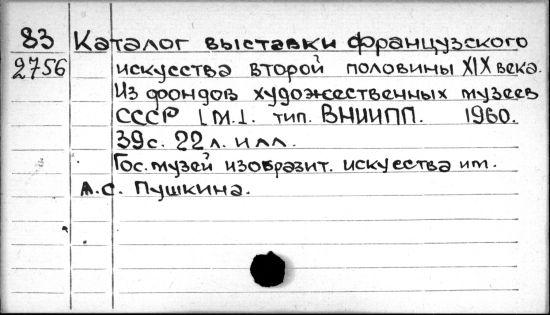 83 Каталог выставки французского
2756 искусства второй половины XIX века.
Из фондов художественных музеев
СССР [М.]. тип. ВНИИПП. 1960.
39 с. 22 л. илл.
Гос. музей изобразит. искусства им.
А.С. Пушкина.